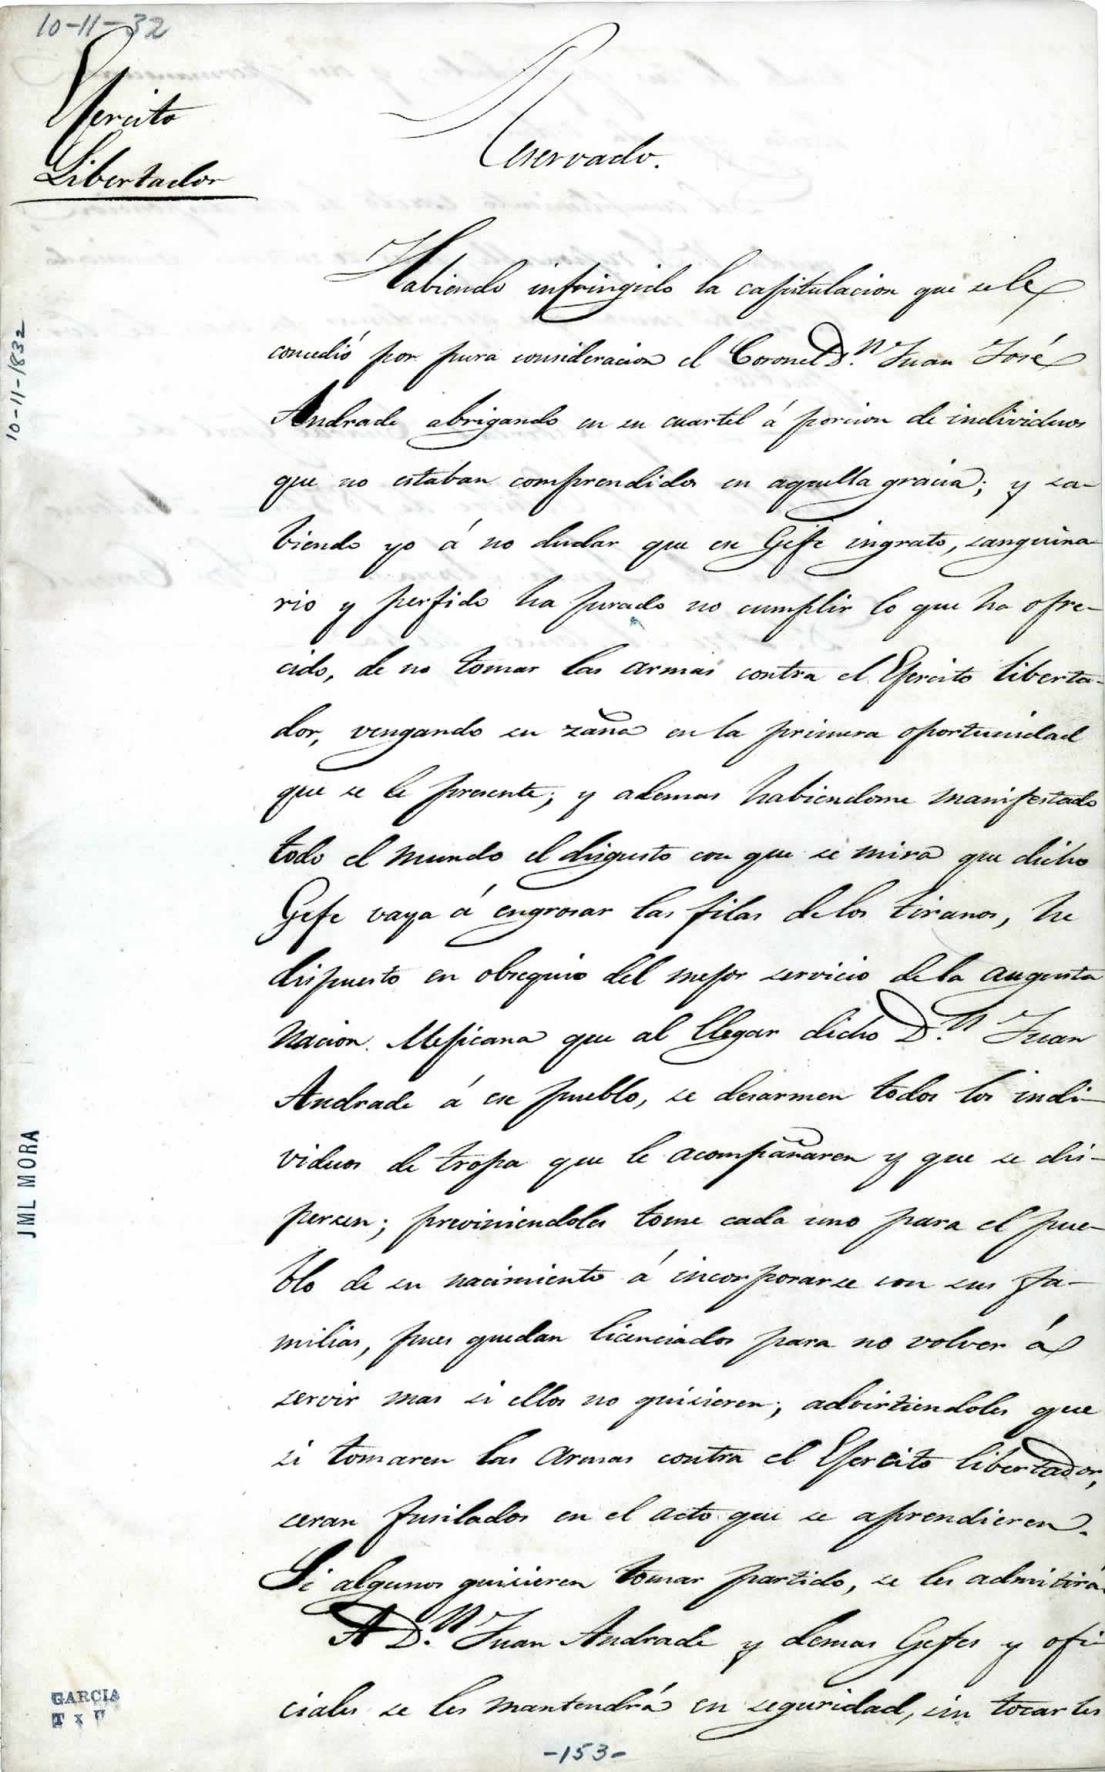 10-11-32
Ejercito
Libertador
Reservado.
Habiendo infringido la capitulacion que se le
concedió por pura consideracion el Coronel D.n Juan José
Andrade abrigando en su cuartel á porcion de individuos
que no estaban comprendidos en aquella gracia; y sa-
biendo yo á no dudar que ese Gefe ingrato, sanguina-
rio y perfido ha jurado no cumplir lo que ha ofre-
cido, de no tomar las armas contra el Ejercito liberta-
dor, vengando su zaña en la primera oportunidad
que se le presente; y ademas habiendome manifestado
todo el mundo el disgusto con que se mira que dicho
Gefe vaya á engrosar las filas de los tiranos, he
dispuesto en obsequio del mejor servicio de la augusta
Nacion Mejicana que al llegar dicho D.n Juan
Andrade á ese pueblo, se desarmen todos los indi-
viduos de tropa que le acompañaren y que se dis-
persen; previniendoles tome cada uno para el pue-
blo de su nacimiento á incorporarse con sus fa-
milias, pues quedan licenciados para no volver á
servir mas si ellos no quisieren; advirtiendoles que
si tomaren las armas contra el Ejercito libertador,
seran fusilados en el acto que se aprendieren.
Si algunos quisieren tomar partido, se les admitirá
A D.n Juan Andrade y demas Gefes y ofi-
ciales se les mantendrá en seguridad, sin tocarles
10-11-1832
JML MORA
GARCIA
-153-